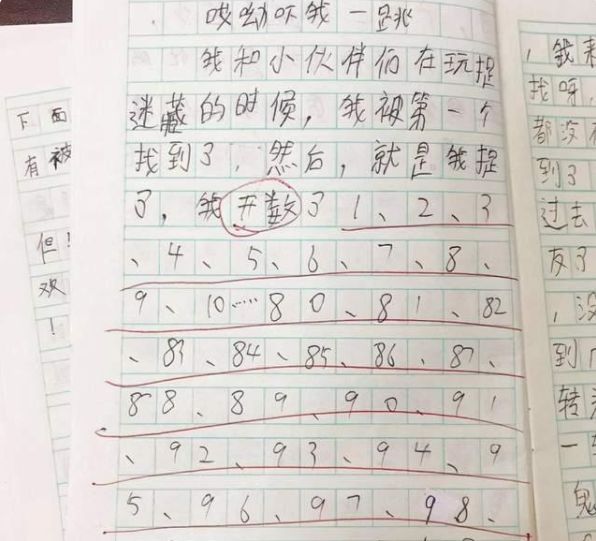 哎呦吓我一跳
我和小伙伴们在玩捉
迷藏的时候，我被第一个
找到了，然后，就是我捉
了，我开数了1、2、3
、4、5、6、7、8、
9、10……80、81、82
、83、84、85、86、87、
88、89、90、91
、92、93、94、9
5、96、97、98、
下面
有被
但！
欢
！
，我
找呀，
都没
到了
过去
友了
，没
到
转
一
鬼